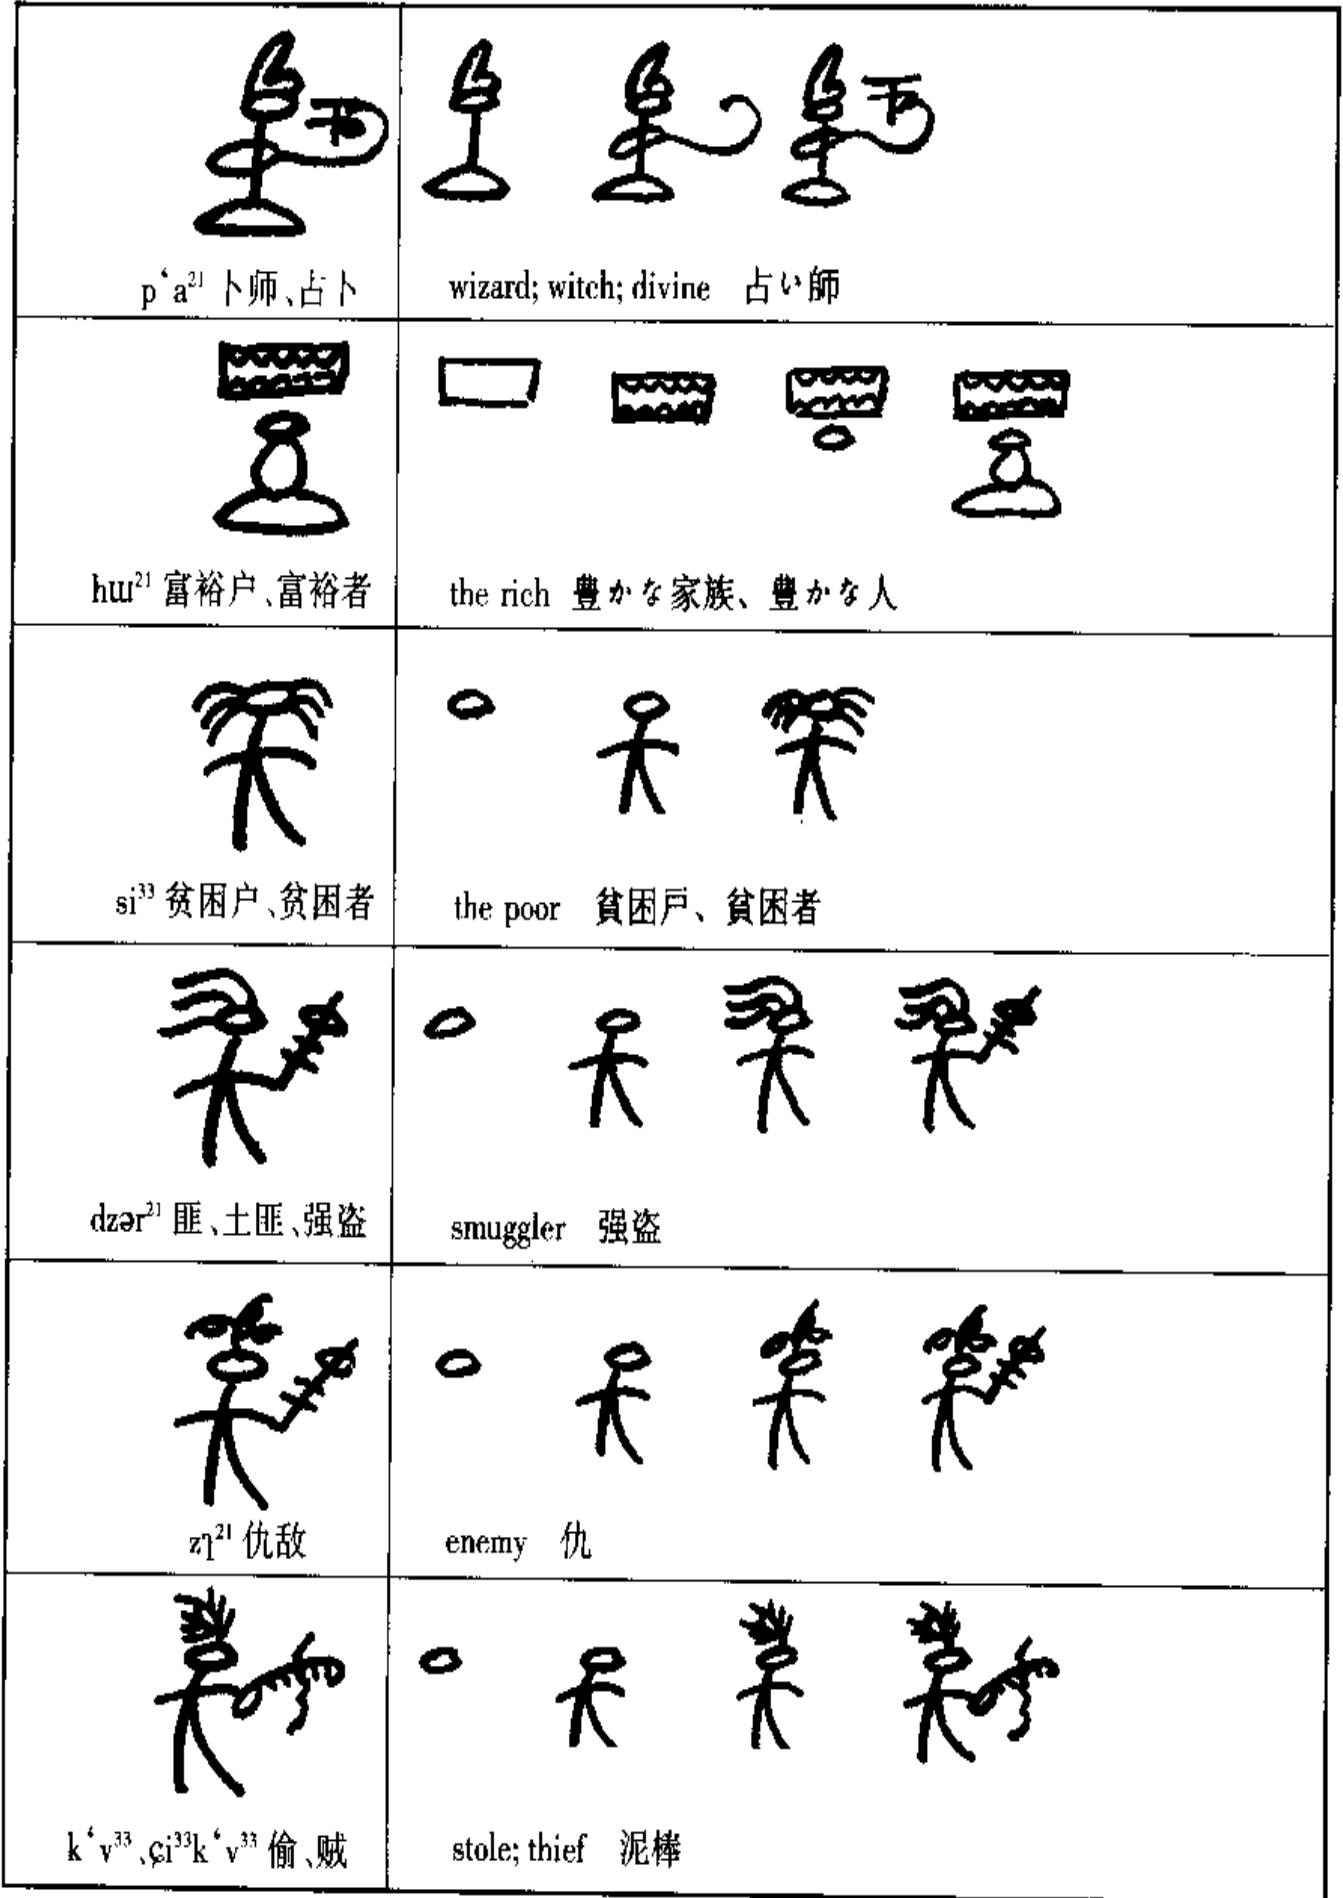 pʻa²¹ 卜师、占卜
wizard; witch; divine 占い師
hɯ²¹ 富裕户、富裕者
the rich 豊かな家族、豊かな人
si³³ 贫困户、贫困者
the poor 貧困戸、貧困者
dzər²¹ 匪、土匪、强盗
smuggler 强盗
zʅ²¹ 仇敌
enemy 仇
kʻv³³、çi³³kʻv³³ 偷、贼
stole; thief 泥棒